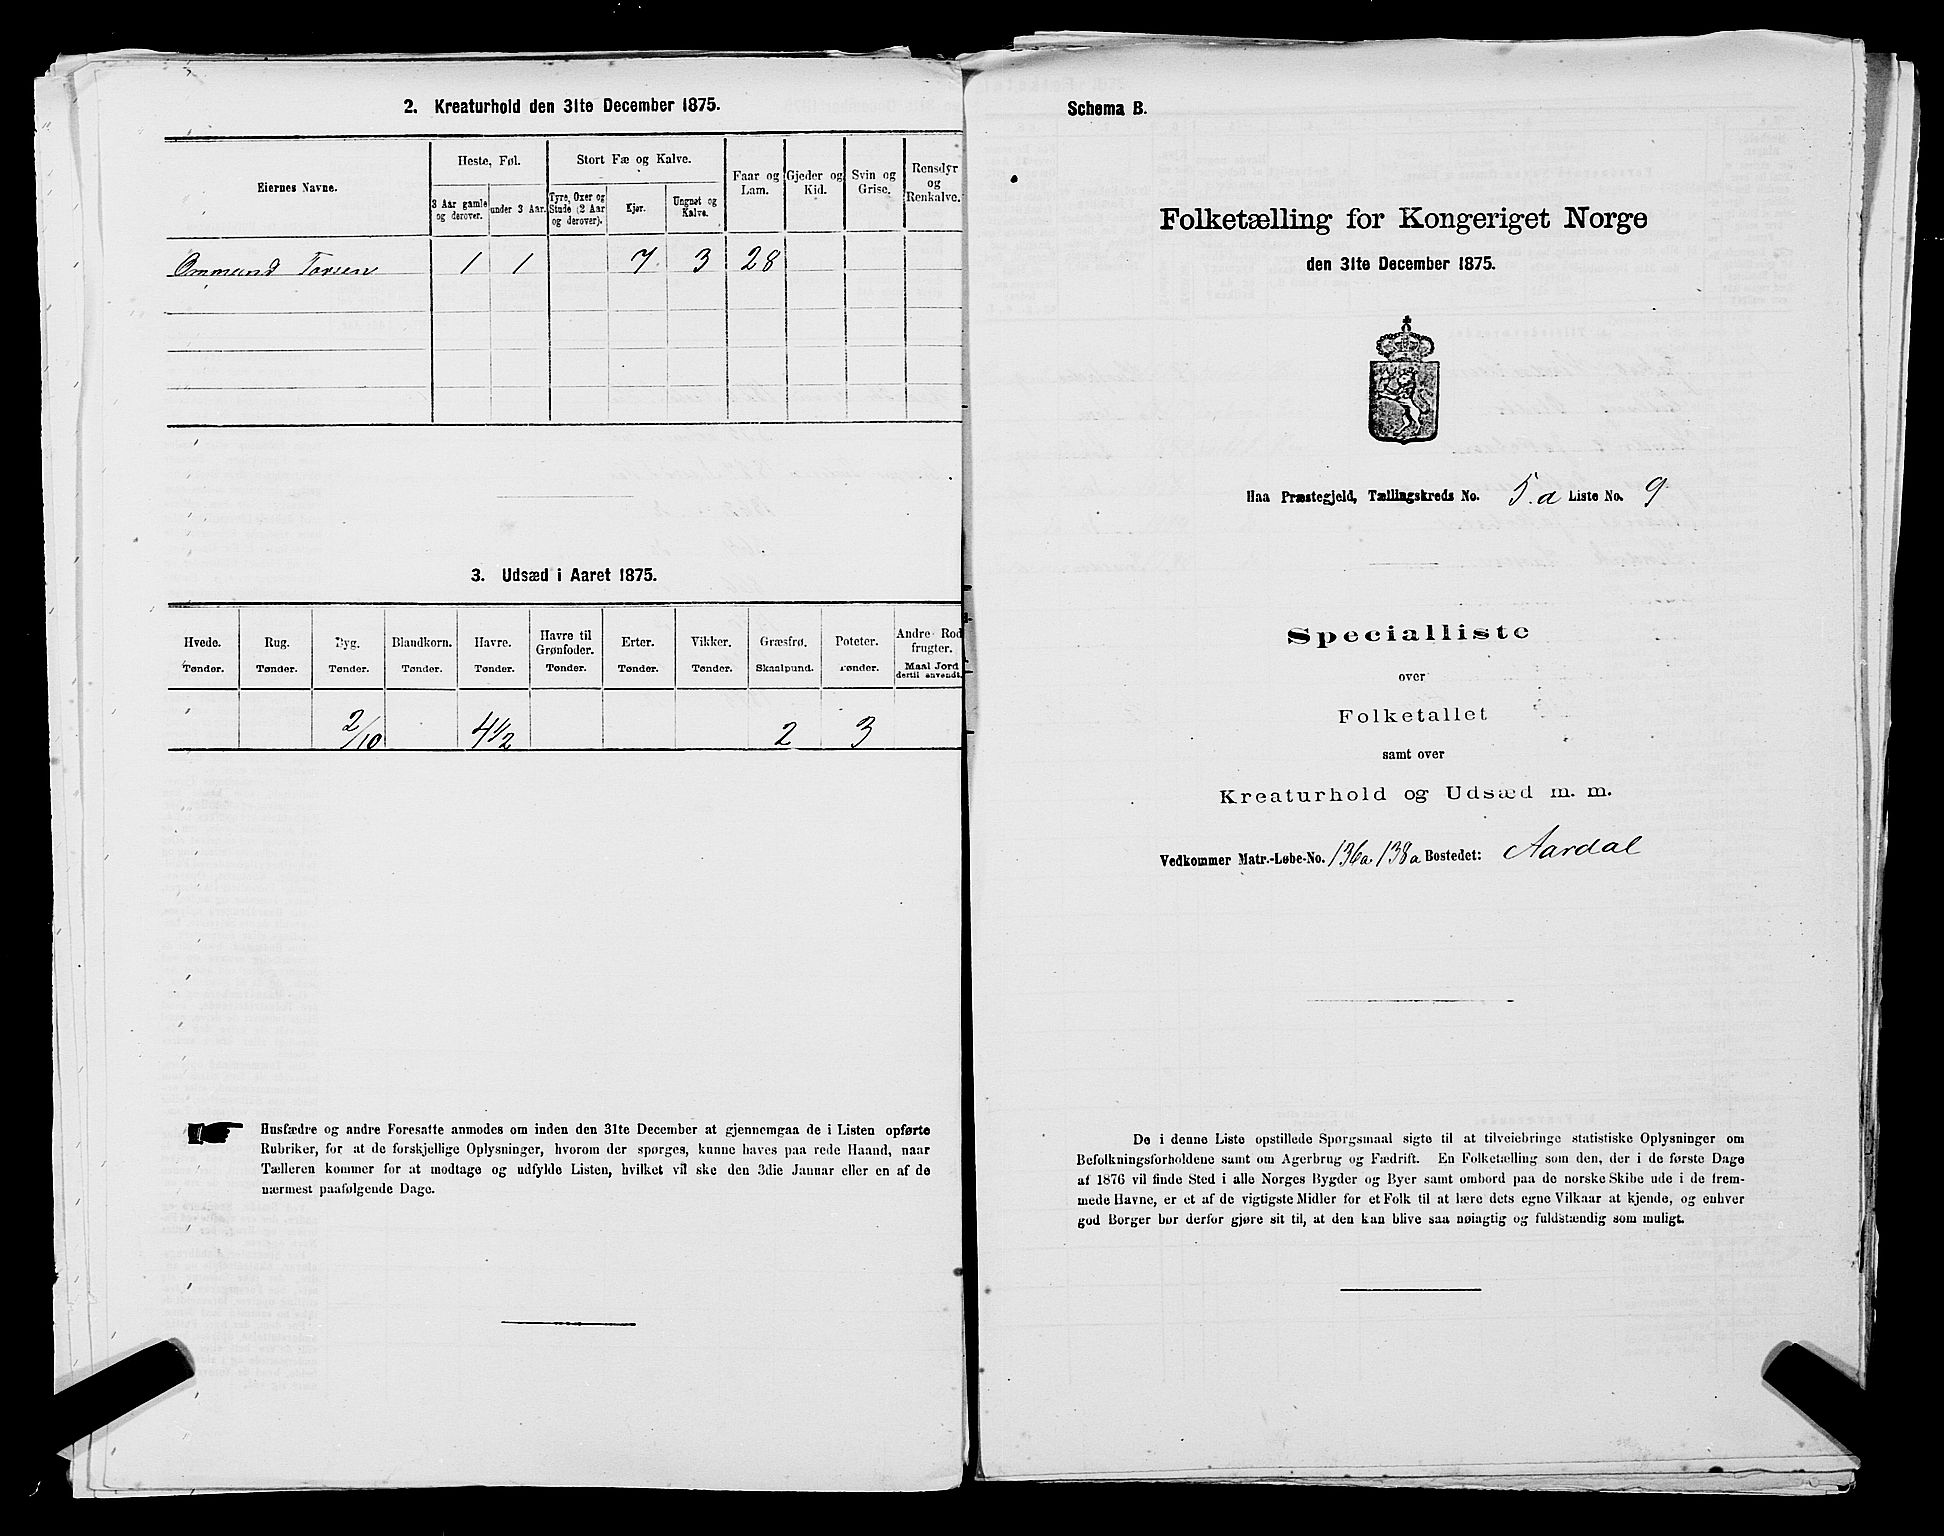 2. Kreaturhold den 31te December 1875.
Eiernes Navne.
Heste, Føl.
3 Aar gamle og derover.
under 3 Aar.
Stort Fæ og Kalve.
Tyre, Oxer og Stude (2 Aar og derover).
Kjør.
Ungnøt og Kalve.
Faar og Lam.
Gjeder og Kid.
Svin og Grise.
Rensdyr og Renkalve.
Ommund Torsen 1 1 7 3 28
3. Udsæd i Aaret 1875.
Hvede. Tønder.
Rug. Tønder.
Byg. Tønder.
Blandkorn. Tønder.
Havre. Tønder.
Havre til Grønfoder. Tønder.
Erter. Tønder.
Vikker. Tønder.
Græsfrø. Skaalpund.
Poteter. Tønder.
Andre Rodfrugter. Maal Jord dertil anvendt.
2/10 4 1/2 2 3
Husfædre og andre Foresatte anmodes om inden den 31te December at gjennemgaa de i Listen opførte
Rubriker, for at de forskjellige Oplysninger, hvorom der spørges, kunne haves paa rede Haand, naar
Tælleren kommer for at modtage og udfylde Listen, hvilket vil ske den 3die Januar eller en af de
nærmest paafølgende Dage.
Schema B.
Folketælling for Kongeriget Norge
den 31te December 1875.
Haa Præstegjeld, Tællingskreds No. 5.a Liste No. 9
Specialliste
over
Folketallet
samt over
Kreaturhold og Udsæd m. m.
Vedkommer Matr.-Løbe-No. 136a. 138a Bostedet: Aardal
De i denne Liste opstillede Spørgsmaal sigte til at tilveiebringe statistiske Oplysninger om
Befolkningsforholdene samt om Agerbrug og Fædrift. En Folketælling som den, der i de første Dage
af 1876 vil finde Sted i alle Norges Bygder og Byer samt ombord paa de norske Skibe ude i de frem-
mede Havne, er et af de vigtigste Midler for et Folk til at lære dets egne Vilkaar at kjende, og enhver
god Borger bør derfor gjøre sit til, at den kan blive saa nøiagtig og fuldstændig som muligt.